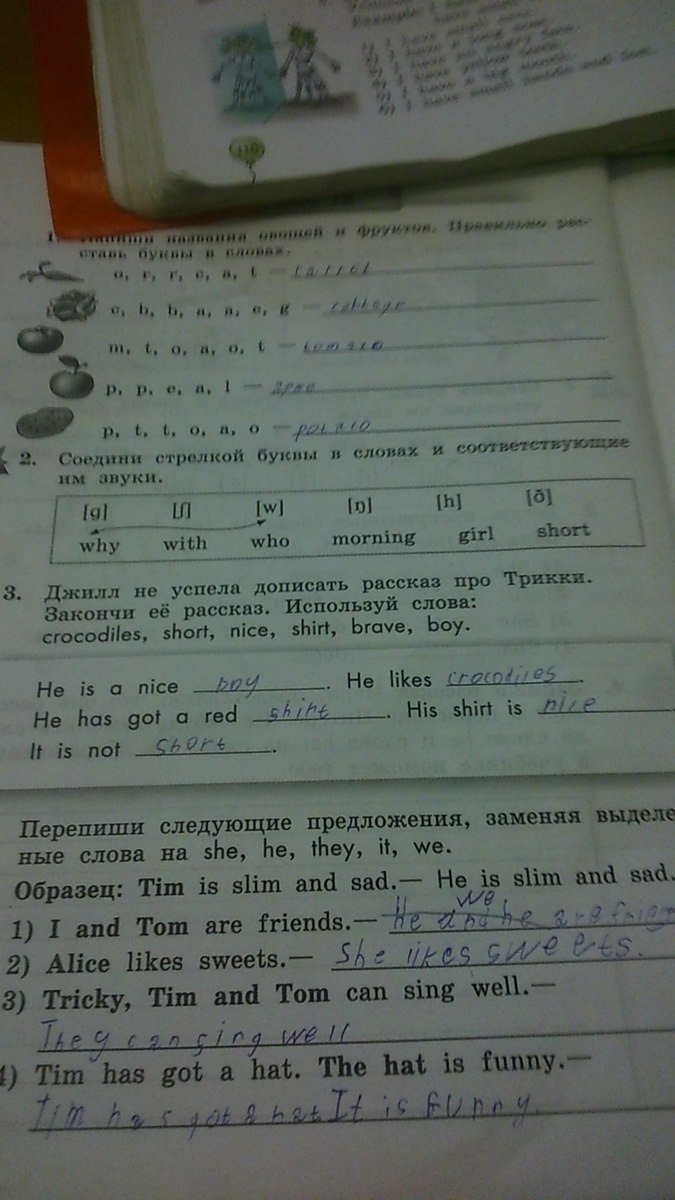 Example: I have
1) I have small
2) I have a long nose.
3) I have an angry face.
4) I have yellow
5) I have a big mouth.
6) I have small hands and
110
1. Напиши названия овощей и фруктов. Правильно рас-
ставь буквы в словах.
o, r, r, c, a, t — carrot
c, b, b, a, a, e, g — cabbage
m, t, o, a, o, t — tomato
p, p, e, a, l —
p, t, t, o, a, o — potato
2. Соедини стрелкой буквы в словах и соответствующие
им звуки.
[g] [ʃ] [w] [ŋ] [h] [ð]
why with who morning girl short
3. Джилл не успела дописать рассказ про Трикки.
Закончи её рассказ. Используй слова:
crocodiles, short, nice, shirt, brave, boy.
He is a nice boy. He likes crocodiles.
He has got a red shirt. His shirt is nice
It is not short.
Перепиши следующие предложения, заменяя выделе
ные слова на she, he, they, it, we.
Образец: Tim is slim and sad.— He is slim and sad.
we
1) I and Tom are friends.— He and he are
2) Alice likes sweets.— She likes sweets.
3) Tricky, Tim and Tom can sing well.—
They can sing well
4) Tim has got a hat. The hat is funny.—
Tim has got a hat It is funny.